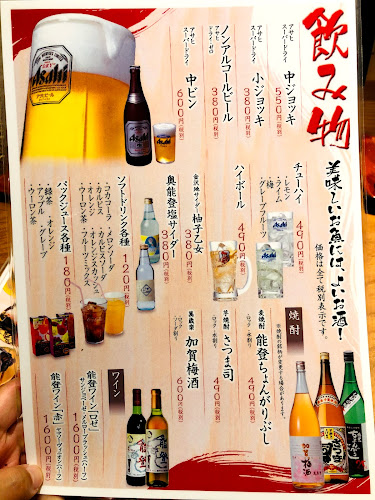 飲み物
美味しいお魚には、よいお酒！
価格は全て税別表示です。
アサヒ
スーパードライ
中ジョッキ
550円(税別)
アサヒ
スーパードライ
小ジョッキ
380円(税別)
アサヒ
ドライゼロ
ノンアルコールビール
380円(税別)
アサヒ
スーパードライ
中ビン
600円(税別)
Asahi
チューハイ
・レモン
・ライム
・梅
・グレープフルーツ
490円(税別)
ハイボール
490円(税別)
金沢地サイダー
柚子乙女
380円(税別)
奥能登塩サイダー
380円(税別)
ソフトドリンク各種
120円(税別)
・コカコーラ
・メロンソーダ
・カルピス
・カルピスソーダ
・オレンジ
・オレンジカルピス
・ウーロン茶
・フルーツミックス
パックジュース各種
180円(税別)
・緑茶
・オレンジ
・アップル
・グレープ
・ウーロン茶
焼酎
麦焼酎
能登ちょんがりぶし
・ロック
・水割り
490円(税別)
芋焼酎
さつま司
・ロック
・水割り
490円(税別)
萬歳楽
加賀梅酒
・ロック
・水割り
600円(税別)
ワイン
能登ワイン「ロゼ」
1600円(税別)
能登ワイン「赤」
1600円(税別)